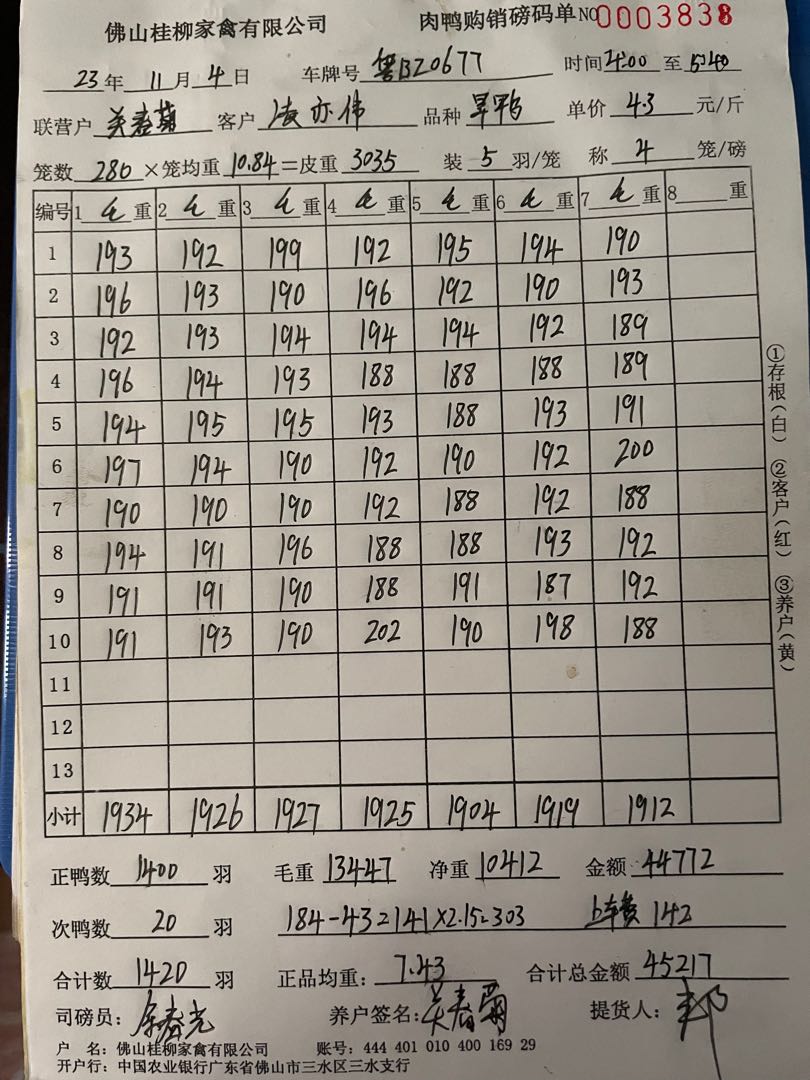 佛山桂柳家禽有限公司 肉鸭购销磅码单 NO 0003838
23年 11月 4日 车牌号 粤BZ0677 时间 4:00 至 5:40
联营户 关春菊 客户 凌亦伟 品种 旱鸭 单价 4.3 元/斤
笼数 280 ×笼均重 10.84 =皮重 3035 装 5 羽/笼 称 4 笼/磅
编号 1 毛 重 2 毛 重 3 毛 重 4 毛 重 5 毛 重 6 毛 重 7 毛 重 8 重
1 193 192 199 192 195 194 190
2 196 193 190 196 192 190 193
3 192 193 194 194 194 192 189
4 196 194 193 188 188 188 189
5 194 195 195 193 188 193 191
6 197 194 190 192 190 192 200
7 190 190 190 192 188 192 188
8 194 191 196 188 188 193 192
9 191 191 190 188 191 187 192
10 191 193 190 202 190 198 188
11
12
13
小计 1934 1926 1927 1925 1904 1919 1912
正鸭数 1400 羽 毛重 13447 净重 10412 金额 44772
次鸭数 20 羽 184-43=141×2.15=303 上车费 142
合计数 1420 羽 正品均重: 7.43 合计总金额 45217
司磅员: 养户签名: 关春菊 提货人:
户 名: 佛山桂柳家禽有限公司 账号: 444 401 010 400 169 29
开户行: 中国农业银行广东省佛山市三水区三水支行
①存根(白) ②客户(红) ③养户(黄)